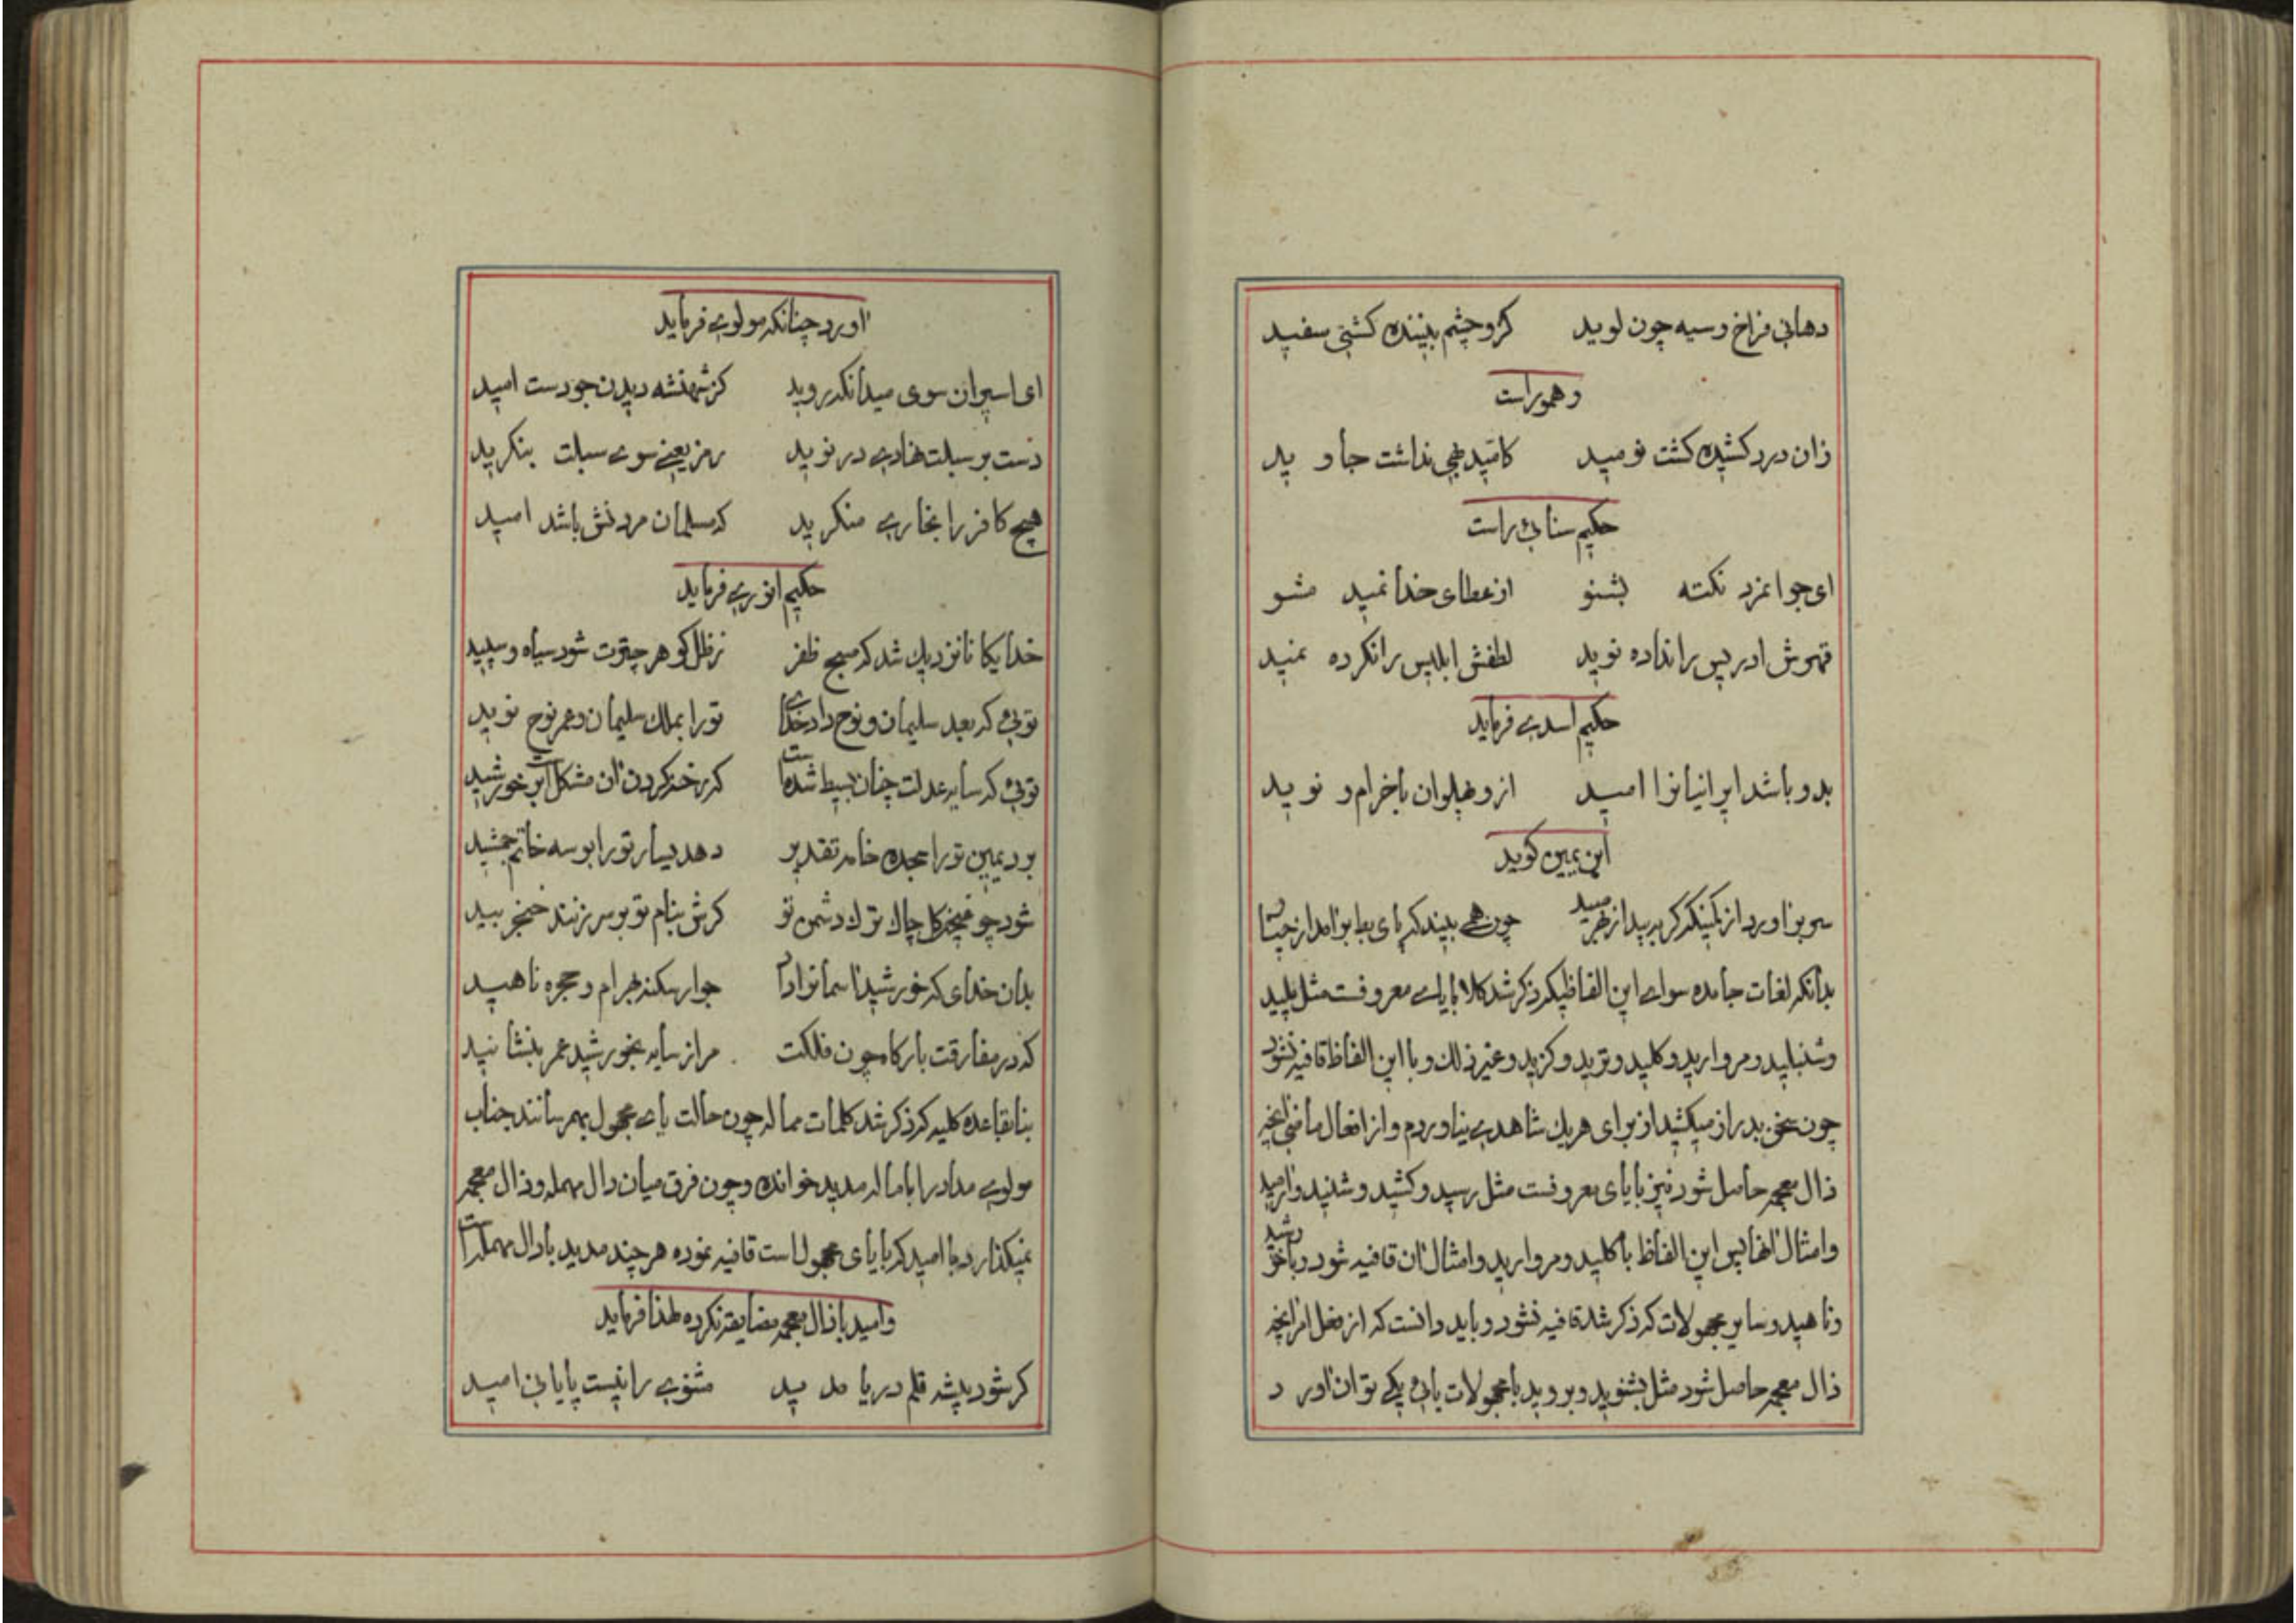 دهانی فراخ و سیه چون لوید کزو چشم بیننده کشتی سفید
و هموراست
زان درد کشیده کشت نومید کامید بهی نداشت جاوید
حکیم سنائی راست
ای جوانمرد نکته بشنو از عطای خدا نمید مشو
قهرش ادریس را نداده نوید لطفش ابلیس را نکرده نمید
حکیم اسدی فرماید
بدو باشد ایرانیانرا امید ازو پهلوان با خرام و نوید
ابن یمین کوید
سر بر اورد از کمینکه کربه بید از چون همی بیند که پای بط برامد از
بدانکه لغات جامده سوای این الفاظیکه ذکر شد کلا بایای معروفست مثل پلید
و شنبلید و مروارید و کلید و ترید و کزید و غیر ذلک و با این الفاظ قافیه نشود
چون سخن بدرازمیکشید از برای هریک شاهدی نیاوردم و از افعال ماضی انچه
ذال معجمه حاصل شود نیز بایای معروفست مثل رسید و کشید و شنید و ارمید
و امثال انها پس این الفاظ با کلید و مروارید و امثال ان قافیه شود و با خورشید
و ناهید و سایر مجهولات که ذکر شد قافیه نشود و باید دانست که از فعل امر انچه
ذال معجمه حاصل شود مثل بشنوید و بروید با مجهولات یائی یکی توان اورد
اورد چنانکه مولوی فرماید
ای اسیران سوی میدانکه روید کز شهنشه دیدن جودست امید
دست بر سبلت نهادی در نوید رمز یعنی سوی سبلت بنکرید
هیچ کافر را بخاری منکرید که مسلمان مردنش باشد امید
حکیم انوری فرماید
خدایکانا نزدیک شد که صبح ظفر ز ظل کوهر چترت شود سیاه و سپید
توئی که بعد سلیمان و نوح داد خدای تورا بملک سلیمان و عمر نوح نوید
توئی که سایه عدلت چنان بسیط شدست که رخنه کردن ان مشکلست بر خورشید
برد یمین تورا سجده خامه تقدیر دهد یسار تورا بوسه خاتم جمشید
شود چو چاک ترک دشمن تو کرش بنام تو بر سر زنند خنجر بید
بدان خدای که خورشید اسمانرا داد جوار سکنه بهرام و حجره ناهید
که در مفارقت بارکاه چون فلکت مرا ز سایه بخورشید عمر بنشانید
بنا بقاعده کلیه که ذکر شد کلمات مماله چون حالت یای مجهول بهمرسانند جناب
مولوی مداد را باماله مدید خوانده و چون فرق میان دال مهمله و ذال معجمه
نمیکذارد با امید که بایای مجهول است قافیه نموده هر چند مدید بادال مهمله است
و امید با ذال معجمه مضایقه نکرده لهذا فرماید
کر شود بیشه قلم دریا مدید مثنوی را نیست پایانی امید